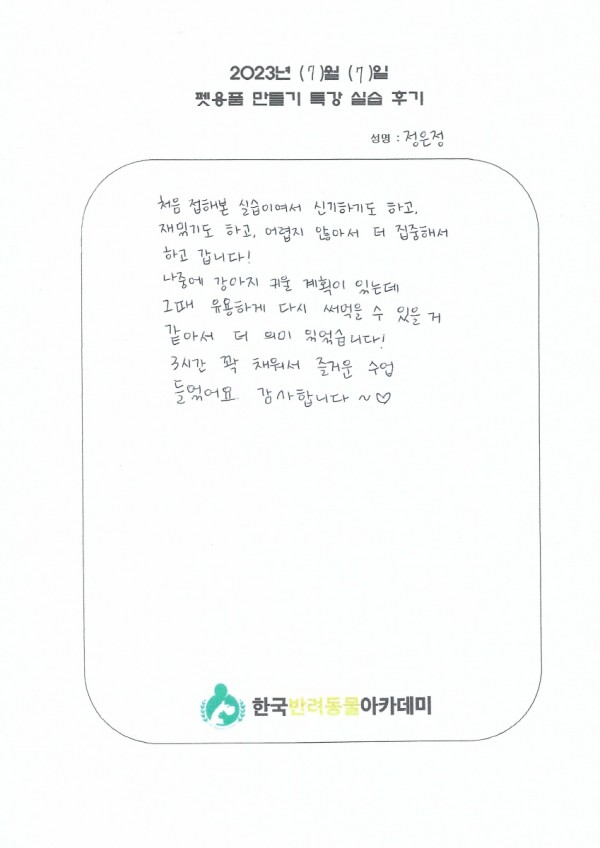 2023년 (7)월 (7)일
펫용품 만들기 특강 실습 후기
성명 : 정은정
처음 접해본 실습이여서 신기하기도 하고,
재밌기도 하고, 어렵지 않아서 더 집중해서
하고 갑니다!
나중에 강아지 키울 계획이 있는데
그때 유용하게 다시 써먹을 수 있을 거
같아서 더 의미 있었습니다!
3시간 꽉 채워서 즐거운 수업
들었어요. 감사합니다 ~♡
한국반려동물아카데미